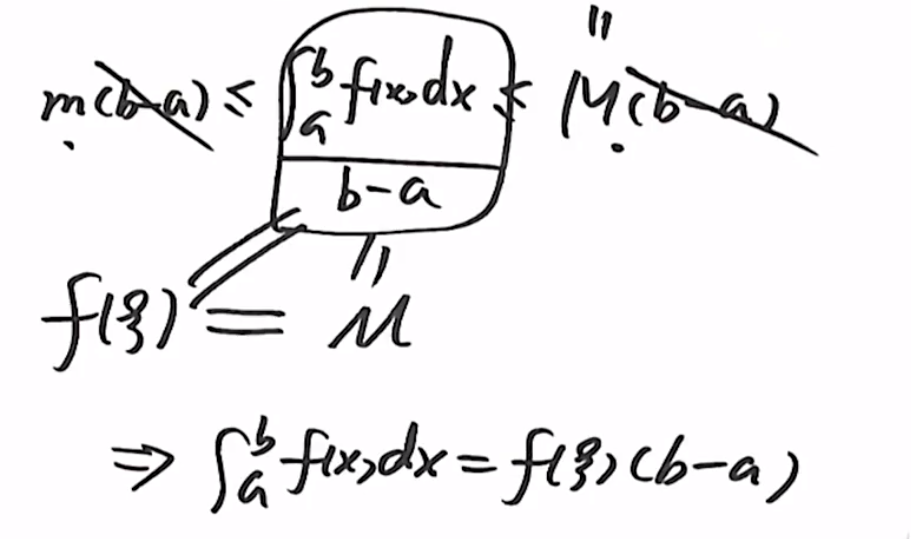 m(b-a) ≤ ∫_a^b f(x)dx ≤ M(b-a)
b-a
f(ξ) = μ
⇒ ∫_a^b f(x)dx = f(ξ)(b-a)